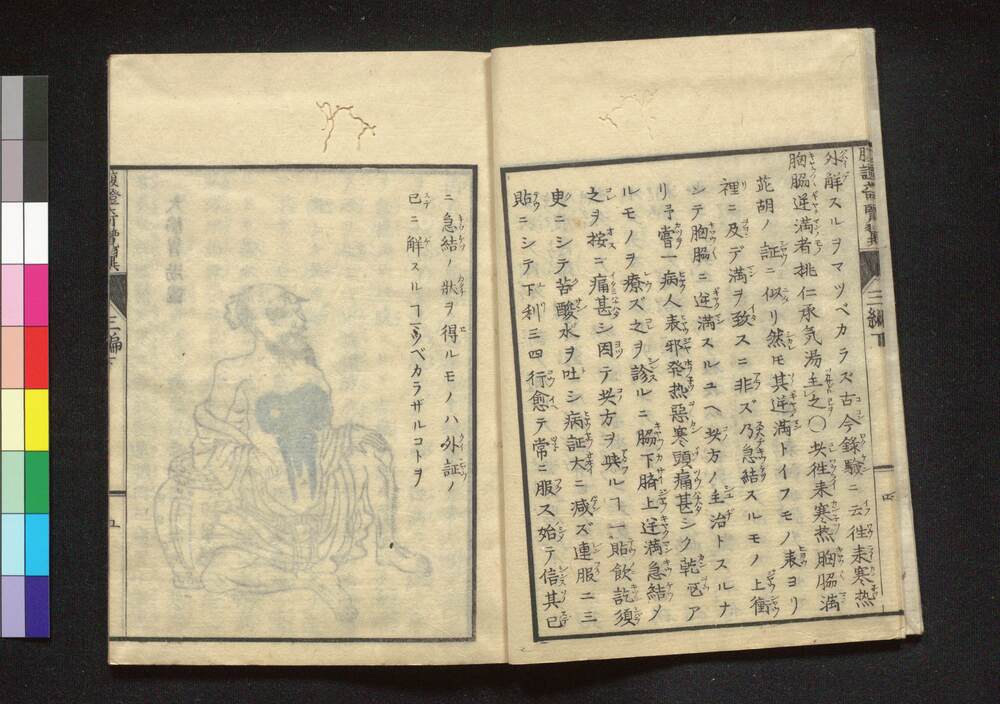 外解スルヲマツベカラズ古今録驗ニ云往来寒熱
胸脇逆満者桃仁承気湯主之〇此往来寒熱胸脇満
茈胡ノ証ニ似リ然モ其逆満トイフモノ表ヨリ
裡ニ及デ満ヲ致スニ非ズ乃急結スルモノ上衝
シテ胸脇ニ逆満スルユヘ此方ノ主治トスルナ
リ予嘗一病人表邪発熱惡寒頭痛甚シク乾嘔ア
ルモノヲ療ズ之ヲ診スルニ脇下臍上逆満急結メ
之ヲ按ニ痛甚シ因テ此方ヲ與ルヿ一貼飲訖須
臾ニシテ苦酸水ヲ吐シ病証大ニ減ズ連服二三
貼ニシテ下利三四行愈テ常ニ服ス始テ信其已
ニ急結ノ狀ヲ得ルモノハ外証ノ
已ニ解スルヿマツベカラザルコトヲ
三編下
四
三編下
五